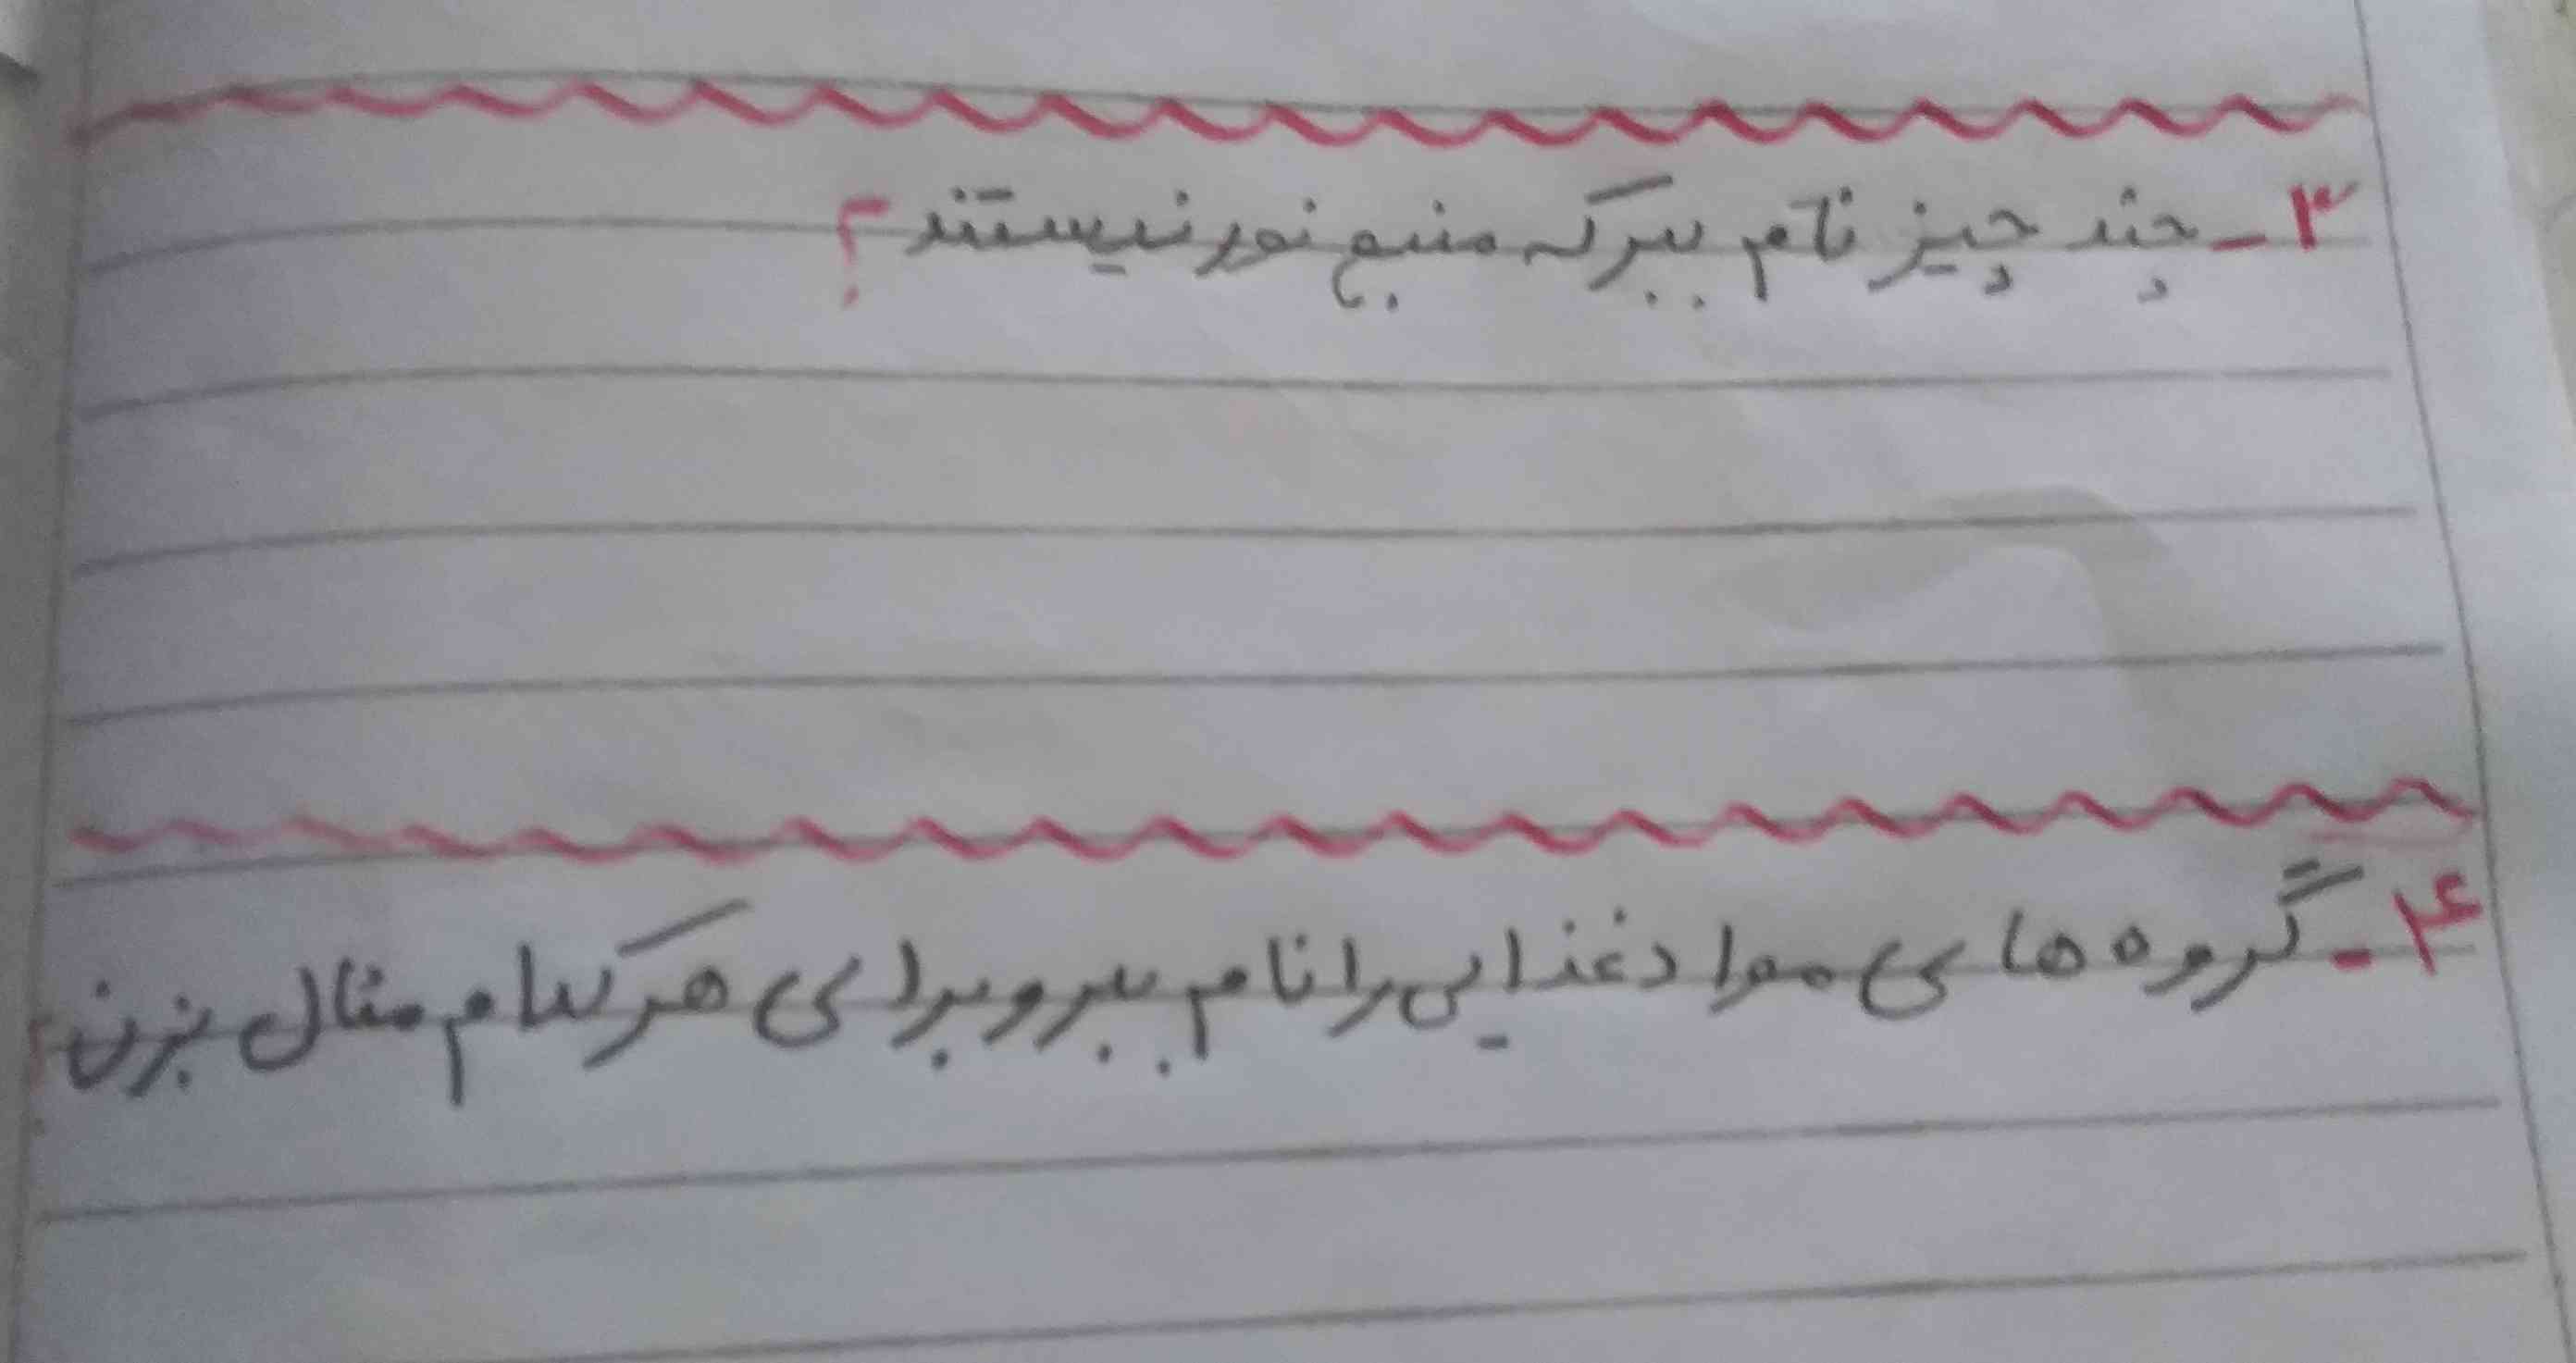 ۳- چند چیز نام ببر که منبع نور نیستند؟
۴- گروه های مواد غذایی را نام ببر و برای هر کدام مثال بزن؟